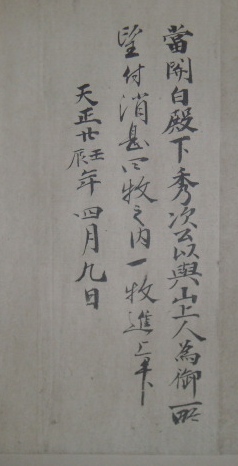 當関白殿下秀次公以與山上人為御所
望付消息四枚之内一枚進上畢
天正廿壬辰年四月九日